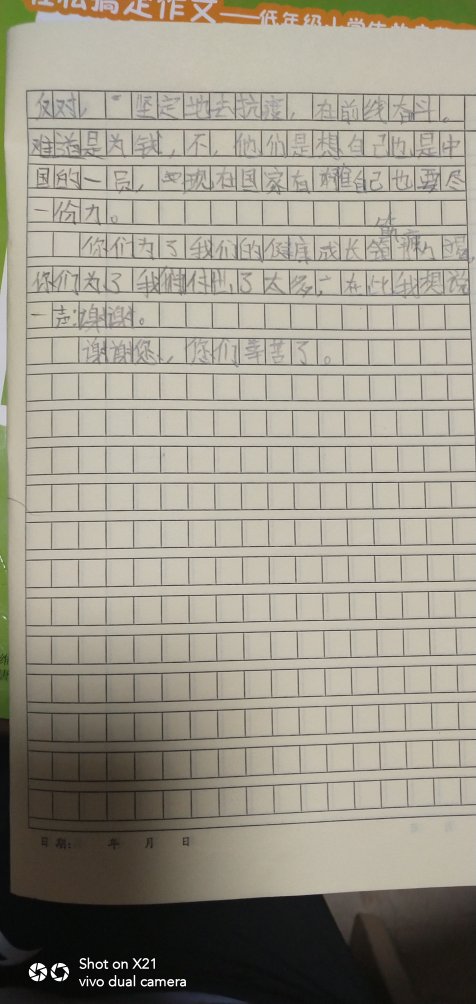 轻松搞定作文——低年级小学生
反对，坚定地去抗疫，在前线奋斗。
难道是为钱，不，他们是想自己也是中
国的一员，现在国家有难自己也要尽
一份力。
你们为了我们的健康成长
你们为了我们付出了太多，在此我想说
一声：谢谢。
谢谢您、您们辛苦了。
日期： 年 月 日
Shot on X21
vivo dual camera